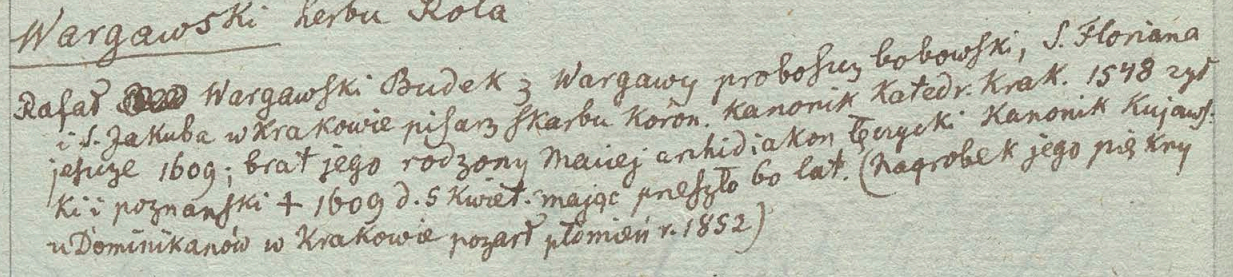 Wargawski herbu Rola
Rafał Wargawski Budek z Wargawy proboszcz bobowski, S. Floriana
i S. Jakuba w Krakowie pisarz skarbu Koron. Kanonik Katedr. Krak. 1548 żył
jeszcze 1609; brat jego rodzony Maciej archidiakon łęczycki Kanonik Kujaws-
ki i poznański + 1609 d. 5 Kwiet. mając przeszło 60 lat. (Nagrobek jego piękny
u Dominikanów w Krakowie pożarł płomień r. 1852)